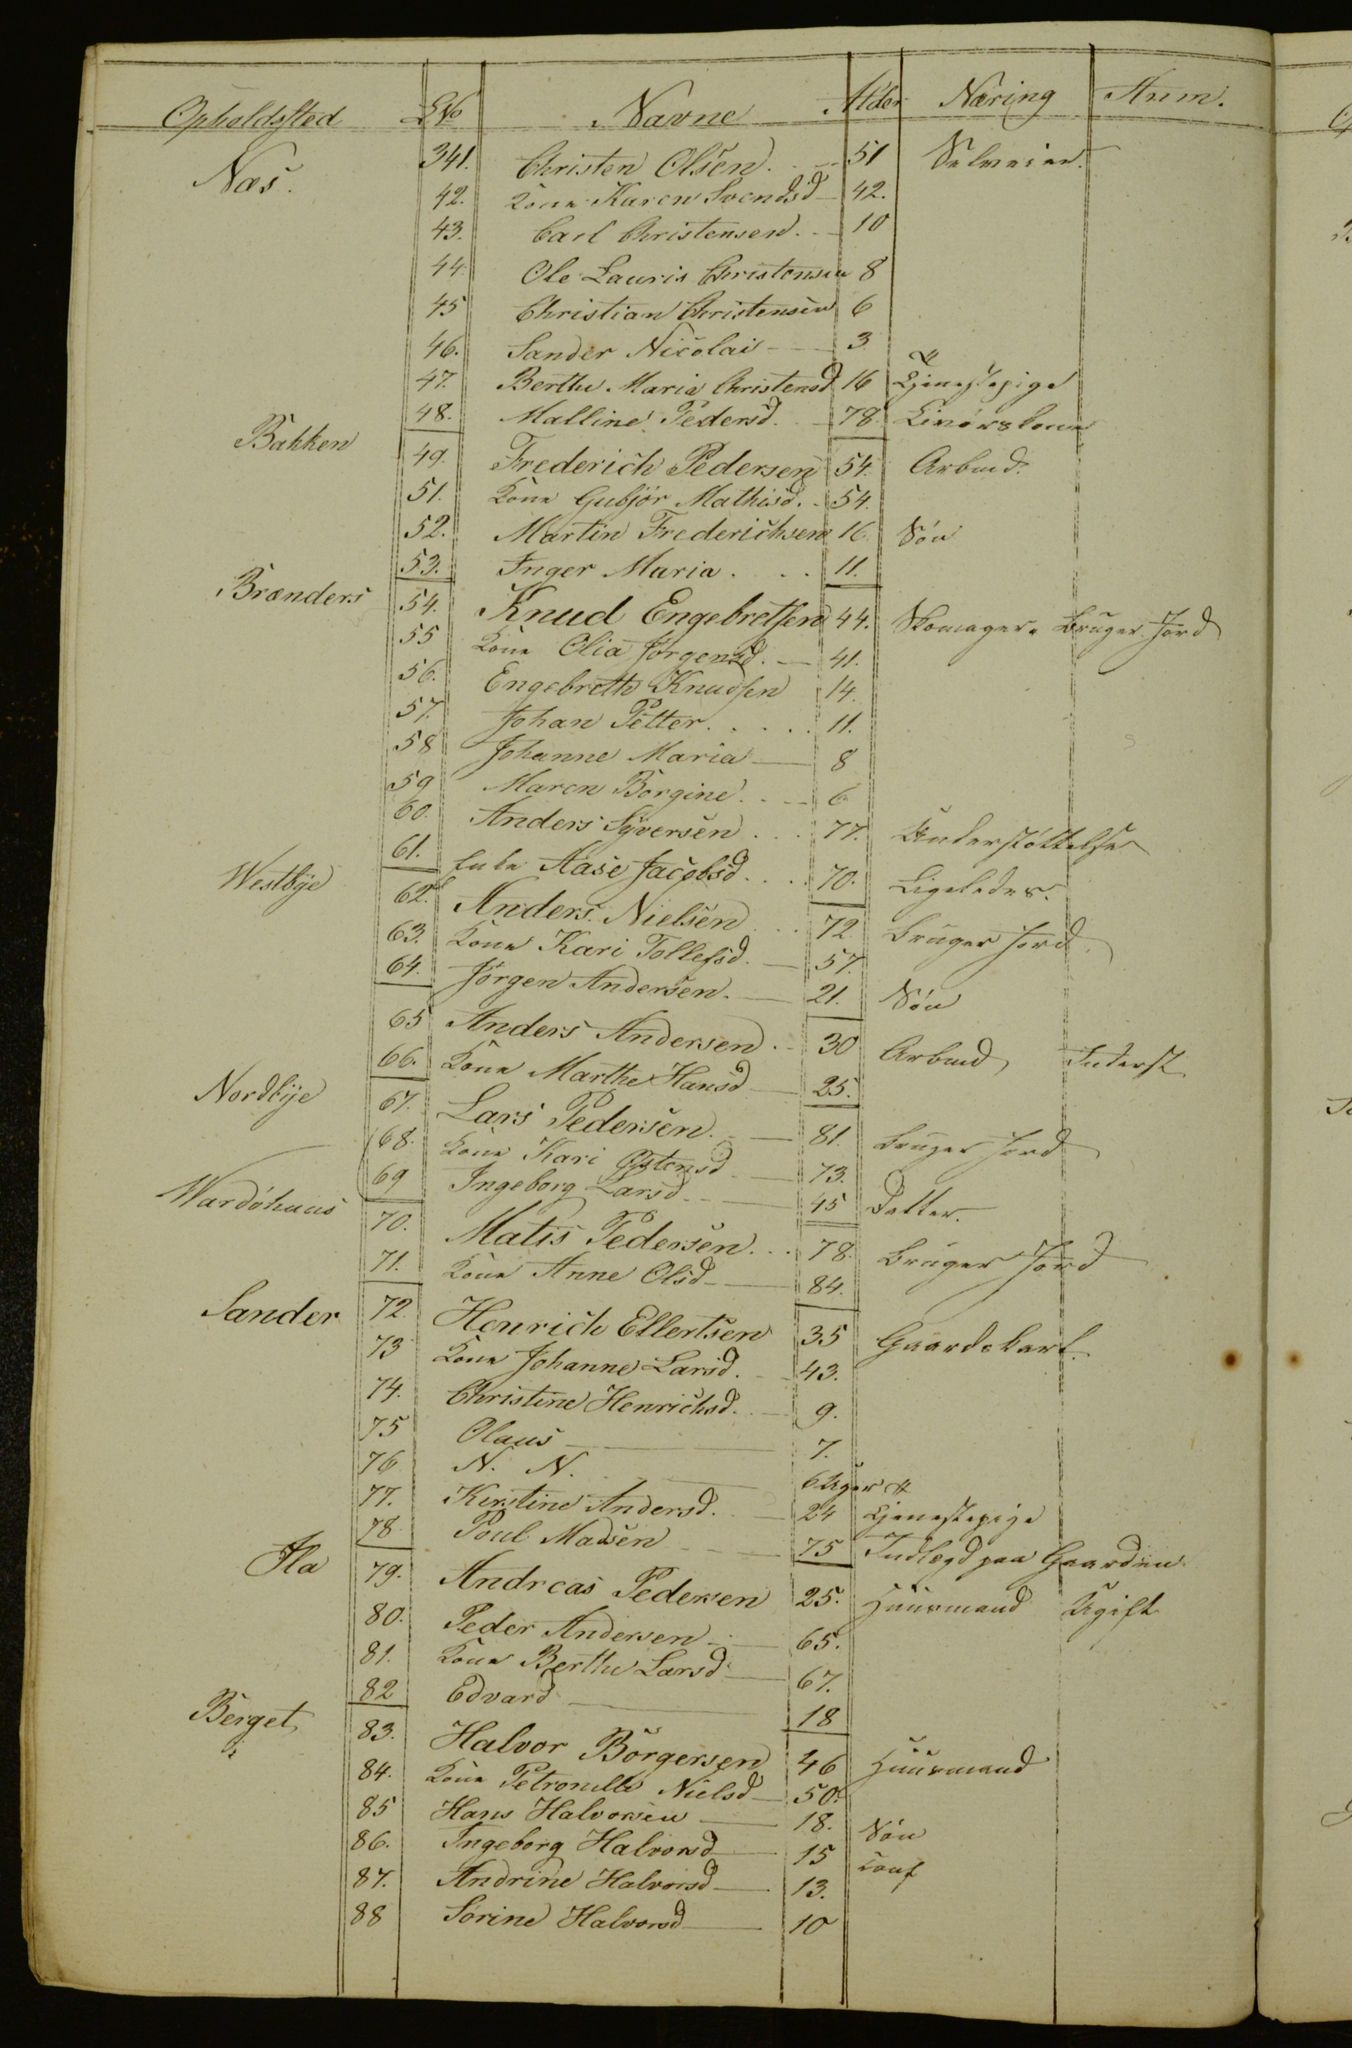 Opholdssted No Navne Alder Næring Anm.
Næs. 341. Christen Olsen. 51 Selveier.
42. Kone Karen Svendsd 42.
43. Carl Christensen. 10
44 Ole Lauris Christensen 8
45 Christian Christensen 6
46. Sander Nicolai 3
47. Berthe Maria Christensd 16 Tjenestepige
48. Malline Pedersd. 78 Livørskone
Bakken 49. Frederich Pedersen 54. Arbmd.
51. Kone Gubjör Mathisd. 54.
52. Martin Frederichsen 16. Søn
53. Inger Maria . . . 11.
Brænders 54. Knud Engebretsen 44. Skomager. Bruger Jord
55 Kone Olia Jørgensd. 41.
56. Engebreth Knudsen 14.
57. Johan Petter. . . . . 11.
58 Johanne Maria 8
59 Maren Borgine. 6
60. Anders Syversen . . . 77. Understøttelse
61. Enke Aase Jacobsd. . . . 70. Ligeledes.
Westbye 62. Anders Nielsen . . 72 Bruger Jord.
63. Kone Kari Tollefsd. 57.
64. Jörgen Andersen. 21. Søn
65 Anders Andersen. 30 Arbmd Inderst
66. Kone Marthe Hansd 25.
Nordbye 67. Lars Pedersen. 81. Bruger Jord
68. Kone Kari Ostensd 73.
69 Ingeborg Larsd. 45 Datter.
Wardöhuus 70. Matis Pedersen. . . 78. Bruger Jord
71. Kone Anne Olsd 84.
Sander 72. Henrich Ellertsen 35 Gaardskarl.
73 Kone Johanne Larsd. 43.
74. Christine Henrichsd. 9.
75 Olaus 7.
76 N. N. 6 Uger
77. Kirstine Andersd. 24 Tjenestepige
78 Poul Madsen 75 Indlagd paa Gaarden
Ila 79. Andreas Pedersen 25. Huusmand Ugift
80. Peder Andersen 65.
81. Kone Berthe Larsd 67.
82 Edvard 18
Berget 83. Halvor Börgersen 46 Huusmand
84. Kone Petronille Nielsd 50.
85 Hans Halvorsen 18. Søn
86. Ingeborg Halvorsd 15 Conf
87. Andrine Halvorsd 13.
88 Sorine Halvorsd 10